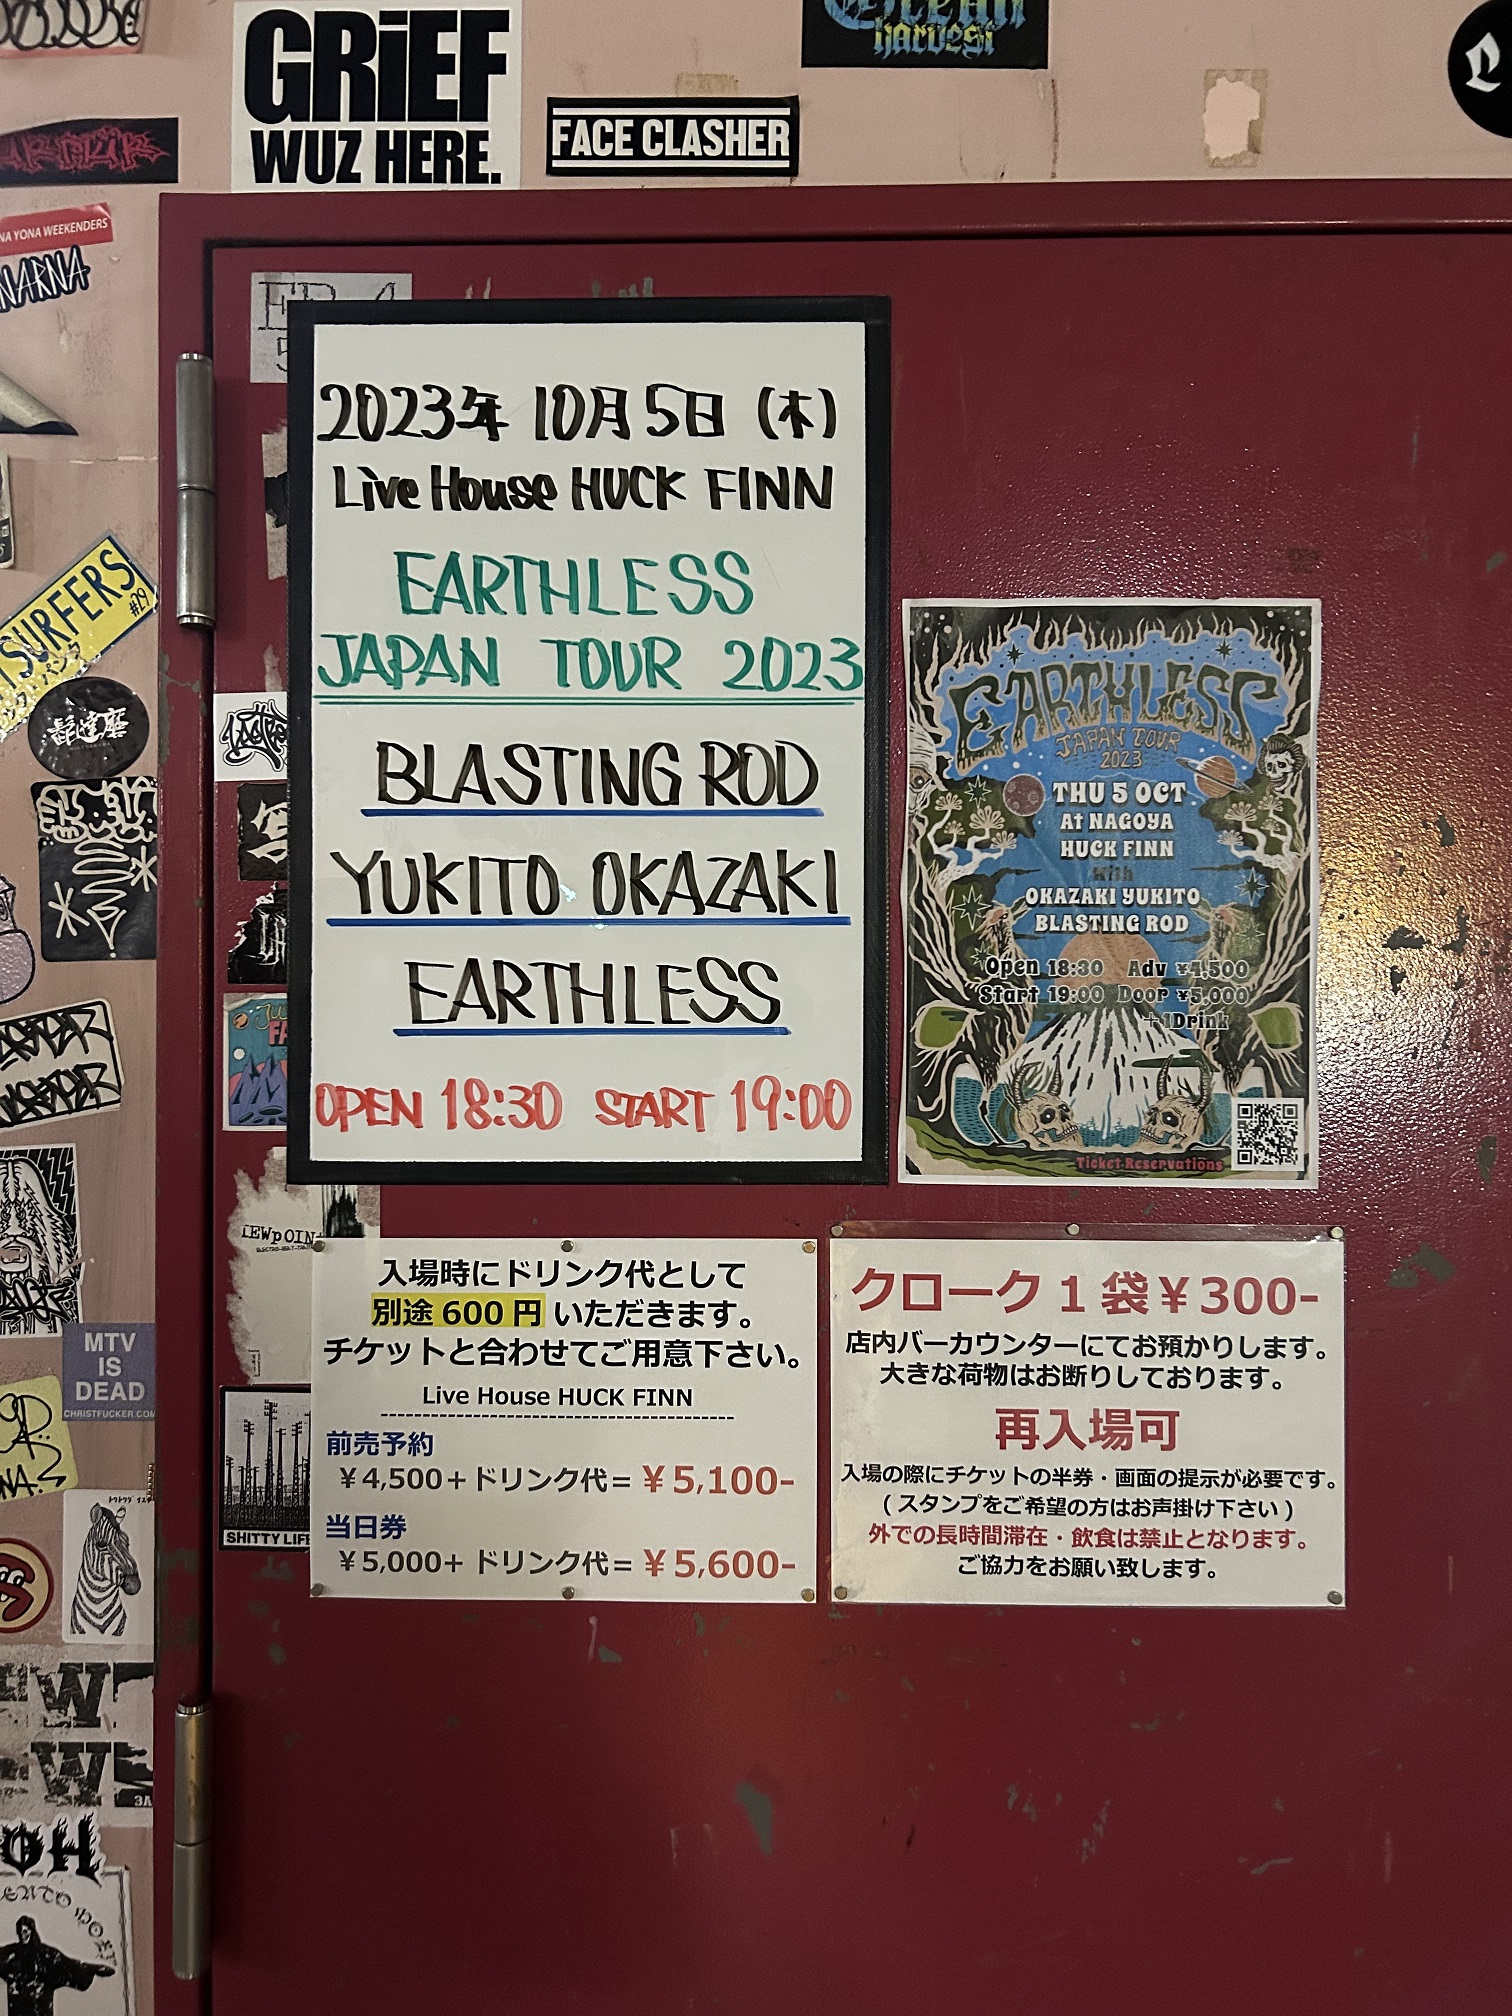 GRiEF
WUZ HERE.
harvest
FACE CLASHER
NA YONA WEEKENDERS
NARNA
2023年 10月5日 (木)
Live House HUCK FINN
EARTHLESS
JAPAN TOUR 2023
BLASTING ROD
YUKITO OKAZAKI
EARTHLESS
OPEN 18:30 START 19:00
SURFERS
#29
EARTHLESS
JAPAN TOUR
2023
THU 5 OCT
At NAGOYA
HUCK FINN
with
OKAZAKI YUKITO
BLASTING ROD
Open 18:30 Adv ¥4,500
Start 19:00 Door ¥5,000
+1Drink
Ticket Reservations
入場時にドリンク代として
別途 600 円 いただきます。
チケットと合わせてご用意下さい。
Live House HUCK FINN
前売予約
¥4,500+ドリンク代=¥5,100-
当日券
¥5,000+ ドリンク代=¥5,600-
クローク 1 袋 ¥300-
店内バーカウンターにてお預かりします。
大きな荷物はお断りしております。
再入場可
入場の際にチケットの半券・画面の提示が必要です。
( スタンプをご希望の方はお声掛け下さい )
外での長時間滞在・飲食は禁止となります。
ご協力をお願い致します。
MTV
IS
DEAD
CHRISTFUCKER.COM
SHITTY LIFE